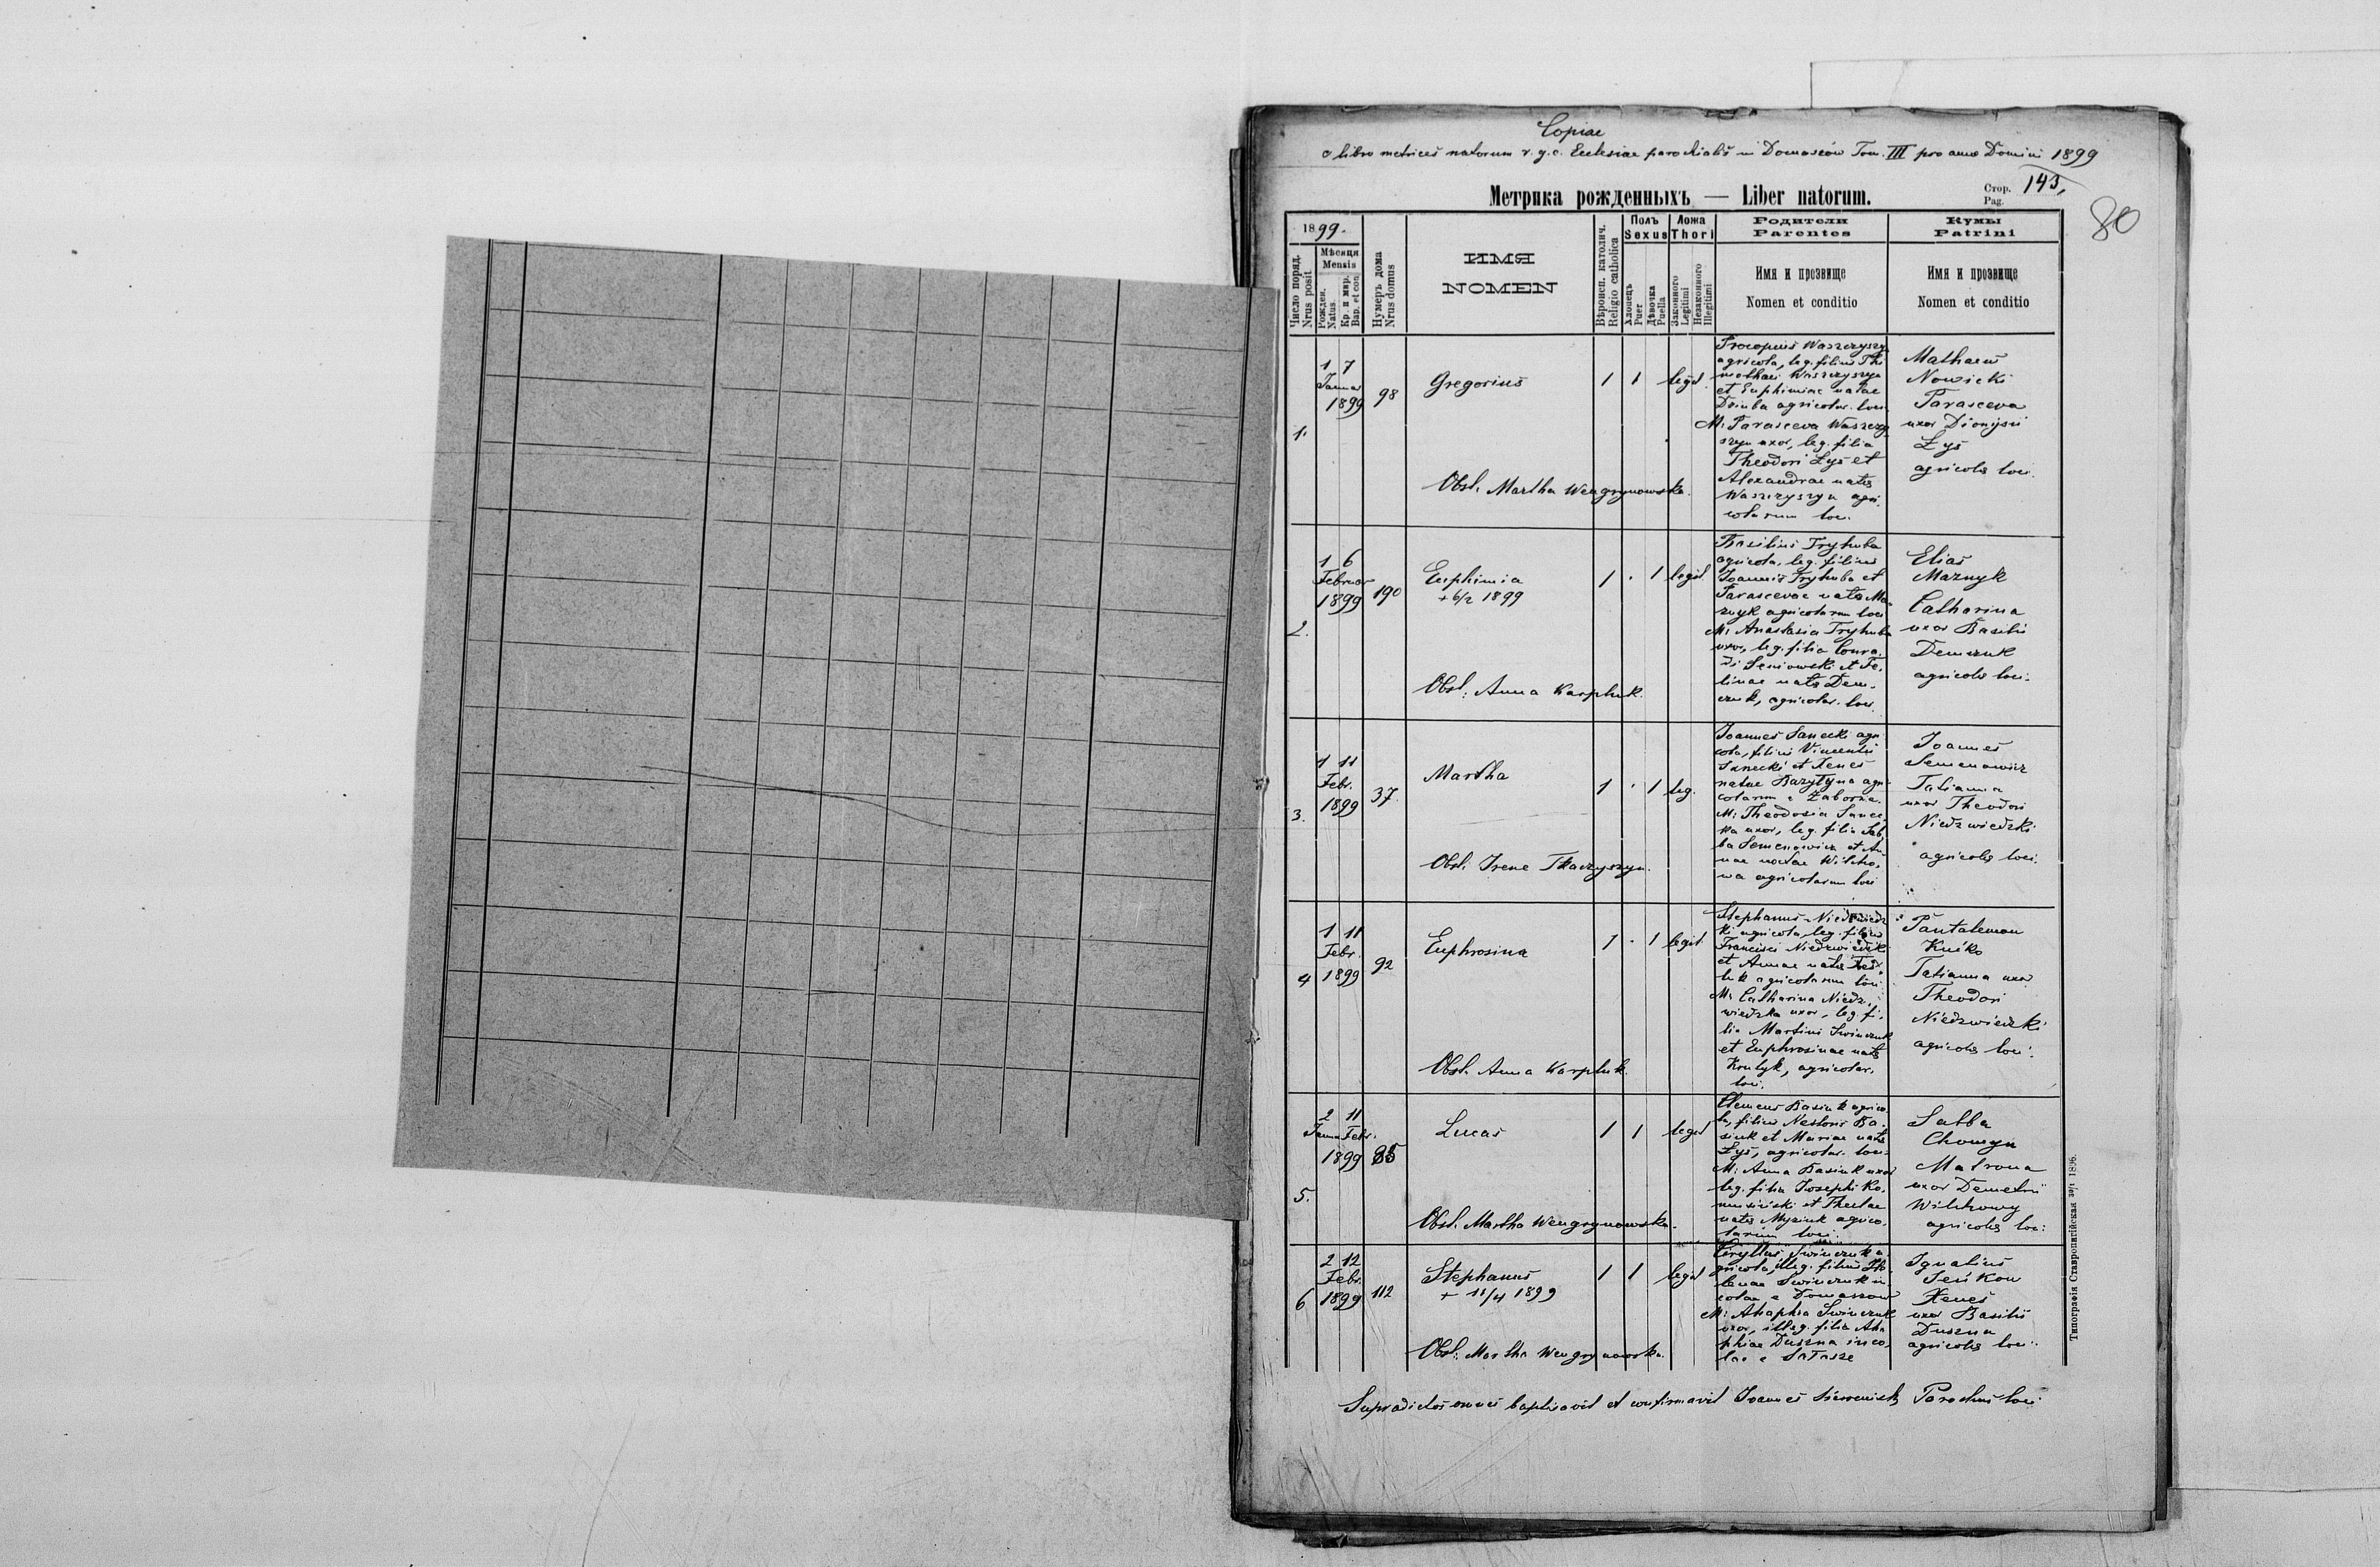 Copiae
e libro metrices natorum r. g. c. Ecclesiae parochialis in Domaszów Tom. III pro anno Domini 1899
Метрика рожденныхъ — Liber natorum.
Стор.
Pag.
143,
80
1899.
Число поряд.
Nrus posit.
Мѣсяця
Mensis
Рожден.
Natus.
Кр. и мѵр.
Bap. et con
Нумеръ дома
Nrus domus
ИМЯ
NOMEN
Вѣроисп. католич.
Religio catholica
Полъ
Sexus
Хлопець
Puer
Дѣвочка
Puella
Ложа
Thori
Законного
Legitimi
Незаконного
Illegitimi
Родители
Parentes
Имя и прозвище
Nomen et conditio
Кумы
Patrini
Имя и прозвище
Nomen et conditio
1.
1 7
Januar
1899
98
Gregorius
Obst. Martha Wengrynowska.
1
1
legit.
Procopius Waszczyszyn
agricola, leg. filius Thi
mothaei Waszczyszyn
et Euphimiae natae
Dziuba agricolar. loci
M: Parasceva Waszczy
szyn uxor, leg. filia
Theodori Łys et
Alexandrae natae
Waszczyszyn agri.
colarum loci.
Mathaeus
Nowicki
Parasceva
uxor Dionysii
Łys
agricolae loci.
2.
1 6
Februar
1899
190
Euphimia
+ 6/2 1899
Obst: Anna Karpluk.
1
.
1
legit.
Basilius Tryhuba
agricola, leg. filius
Joannis Tryhuba et
Parascevae natae Ma
znyk agricolarum loci
M: Anastasia Tryhuba
uxor, leg. filia Conra,
di Seniowski et Te,
linae natae Dem,
czuk, agricolar. loci.
Elias
Maznyk
Catharina
uxor Basilii
Demczuk
agricolae loci.
3.
1 11
Febr.
1899
37.
Martha
Obst. Irene Tkaczyszyn.
1
.
1
leg.
Joannes Sanecki agri
cola, filius Vincentii
Sanecki et Xenes
natae Bazytyna agri
colarum e Zaborze.
M: Theodosia Sanec,
ka uxor, leg. filia Sab,
ba Semenowicz et An
nae natae Wilcho,
wa agricolarum loci
Joannes
Semenowicz
Tatianna
uxor Theodori
Niedzwiedzki
agricolae loci.
4
1 11
Febr.
1899
92
Euphrosina
Obst. Anna Karpluk.
1
.
1
legit.
Stephanus Niedzwiedz
ki agricola, leg. filius
Francisci Niedzwiedzki
et Annae natae Fed,
luk agricolarum loci.
M: Catharina Niedz,
wiedzka uxor, leg. fi,
lia Martini Swinczuk
et Euphrosinae natae
Krulyk, agricolar.
loci.
Pantalemon
Kuśko
Tatianna uxor
Theodori
Niedzwiedzki
agricolae loci.
5.
2 11
Janu Febr.
1899
85
Lucas
Obst. Martha Wengrynowska.
1
1
legit
Clemens Basiuk agrico
la, filius Nestoris Ba,
siuk et Mariae natae
Łys, agricolar. loci.
M: Anna Basiuk uxor
leg. filia Josephi Ko,
musiński et Theclae
natae Mysiuk agrico,
larum loci.
Sabba
Chomyn
Matrona
uxor Demetrii
Wilchowy
agricolae loci:
6
2 12
Febr.
1899
112
Stephanus
+ 11/4 1899
Obst: Martha Wengrynowska.
1
1
legit
Cyryllus Swinczuk a
gricola, illeg. filius He
lenae Swinczuk in
colae e Domaszow
M: Ahaphia Swinczuk
uxor, illeg. filia Aha
phiae Duszna inco,
lae e Sałasze
Ignatius
Seńkow
Xenes
uxor Basilii
Duszna
agricolae loci.
Supradictos omnes baptisavit et confirmavit Joannes Parochus loci.
Типографія Ставропигійская 1896.